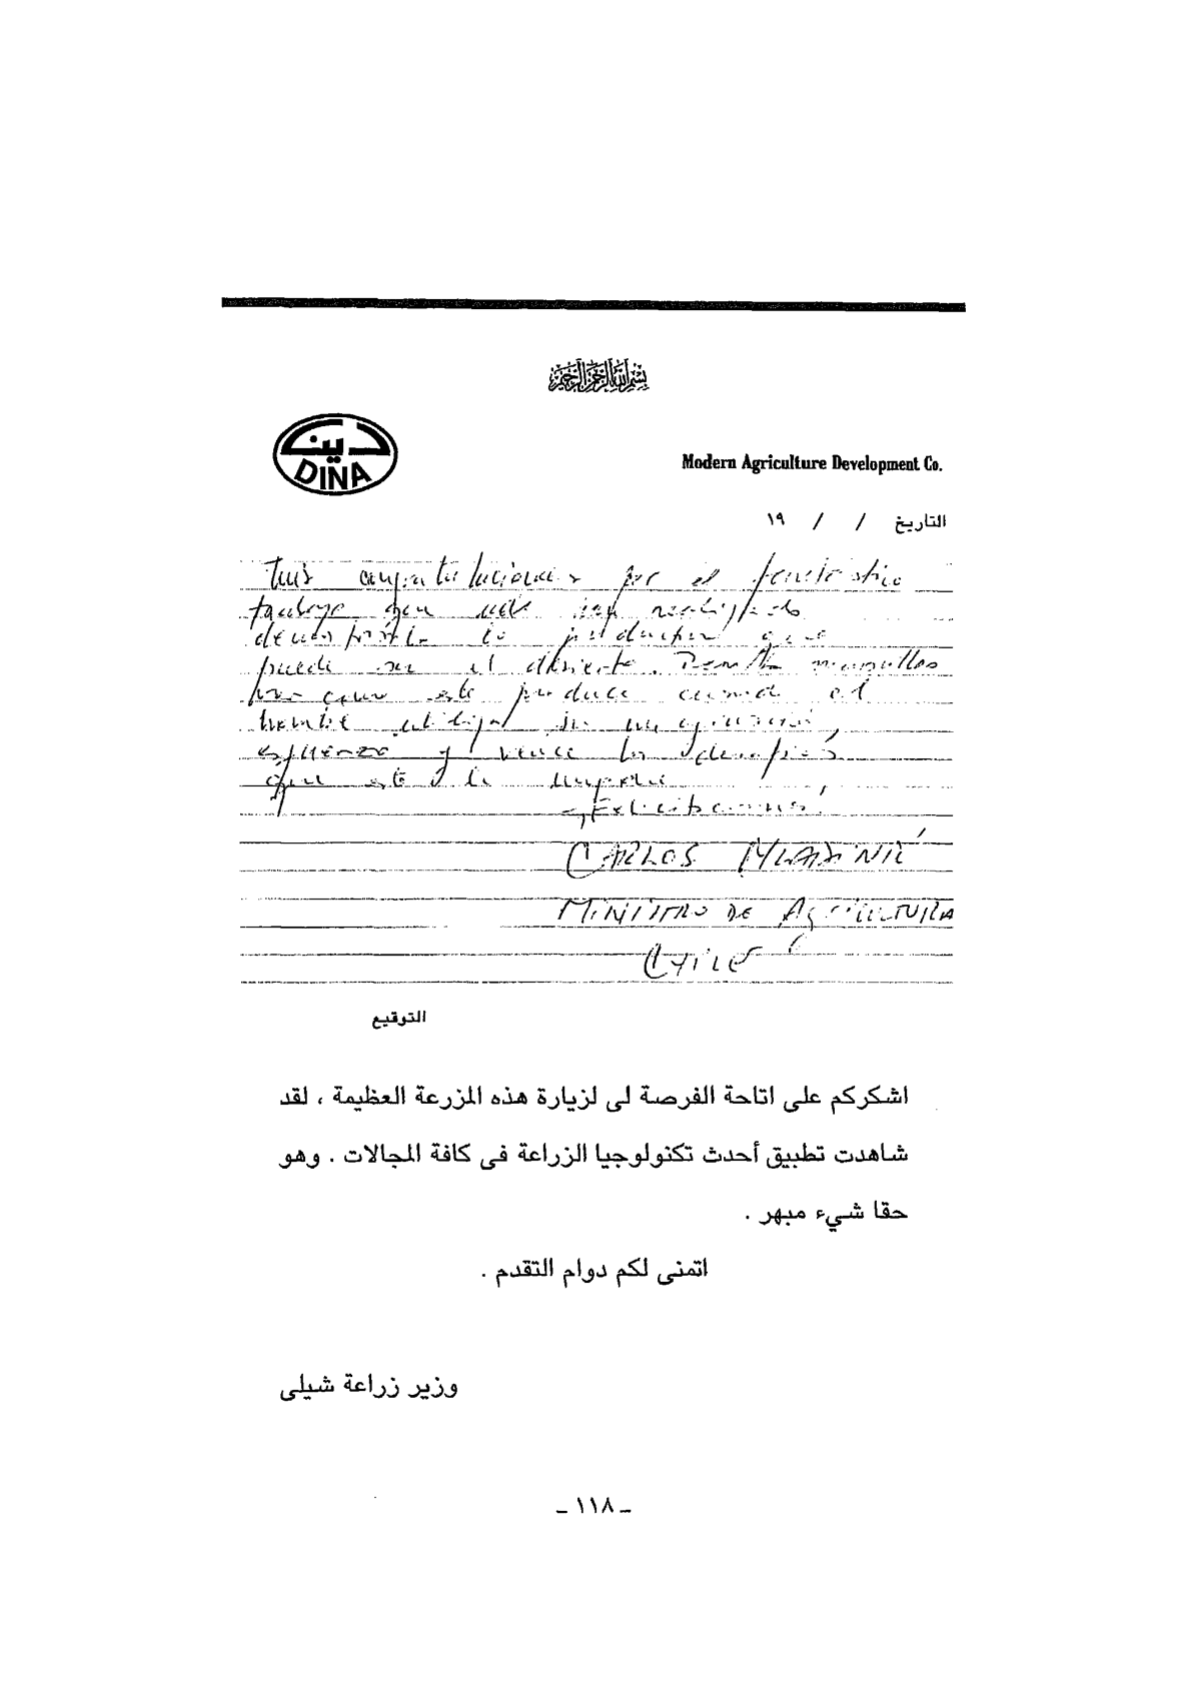 بسم الله الرحمن الرحيم
دينا
DINA
Modern Agriculture Development Co.
التاريخ / / ١٩
por el fantástico
trabajo que uds han realizado
lo productivo que
puede ser el desierto.
este produce cuando el
hombre utiliza su imaginación,
esfuerzo y vence los desafíos
que este le
Felicitaciones,
CARLOS MLADINIC
MINISTRO DE AGRICULTURA
CHILE
التوقيع
اشكركم على اتاحة الفرصة لى لزيارة هذه المزرعة العظيمة ، لقد
شاهدت تطبيق أحدث تكنولوجيا الزراعة فى كافة المجالات . وهو
حقا شيء مبهر .
اتمنى لكم دوام التقدم .
وزير زراعة شيلى
ـ ١١٨ ـ